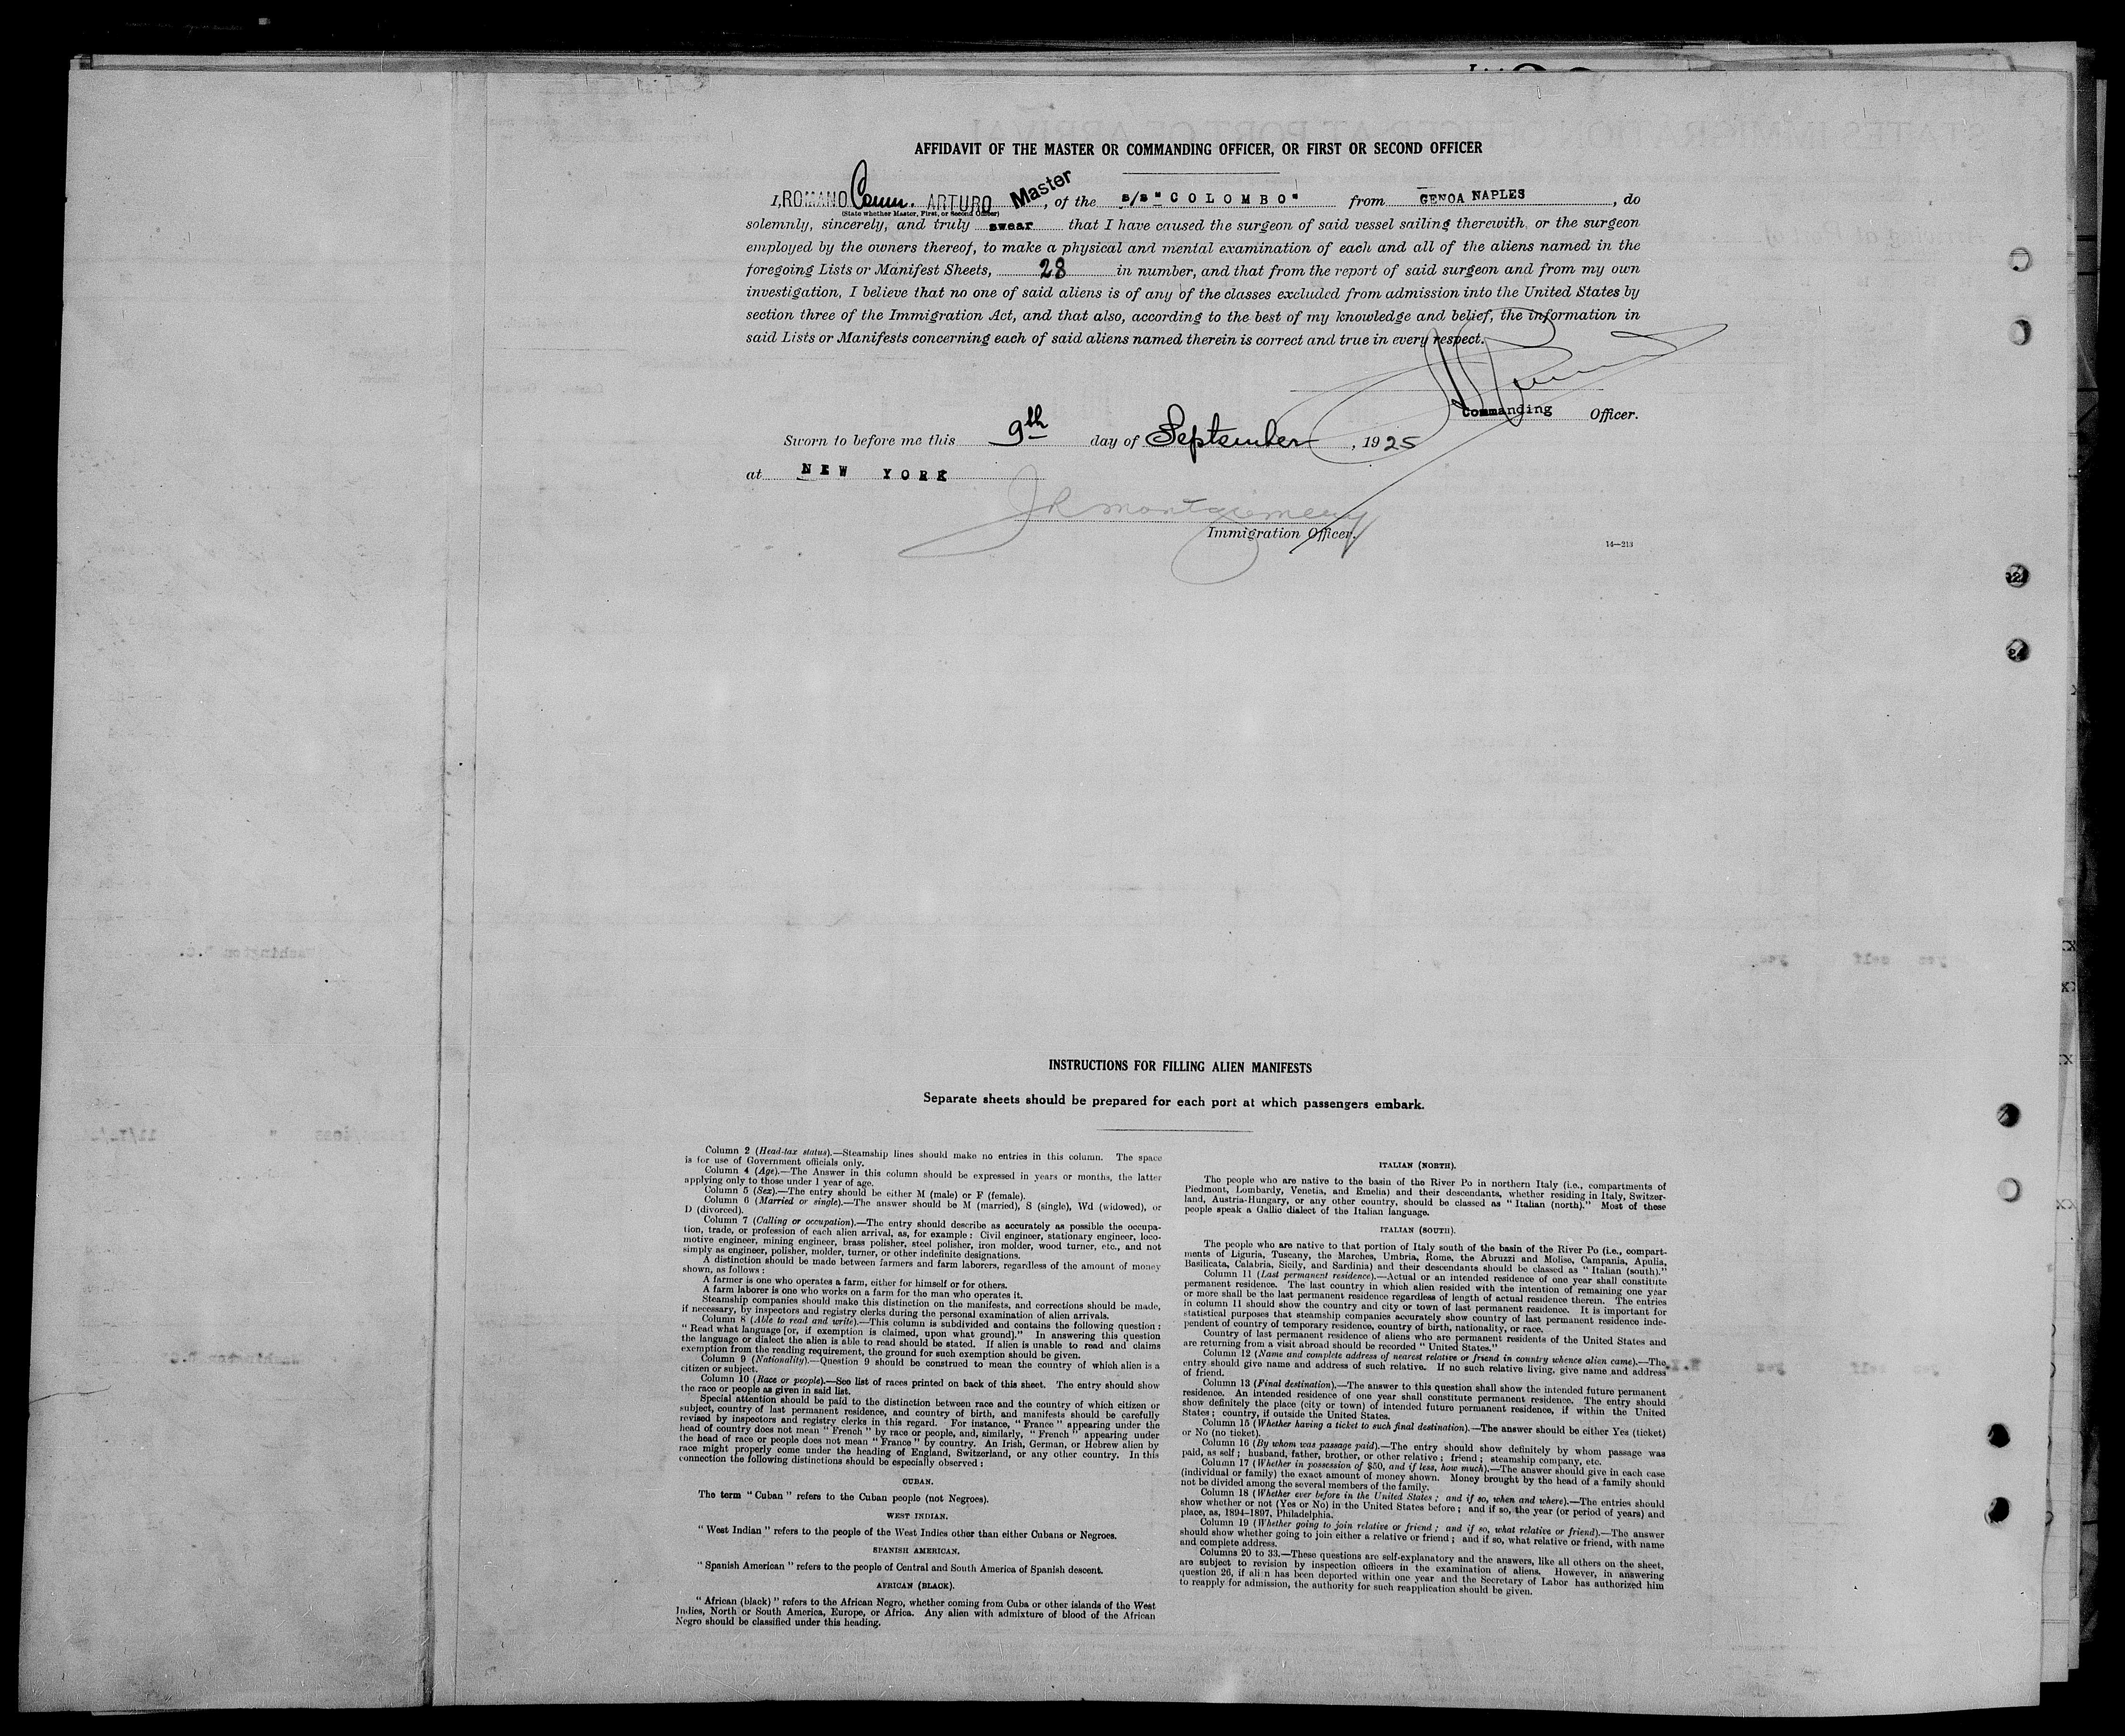 AFFIDAVIT OF THE MASTER OR COMMANDING OFFICER, OR FIRST OR SECOND OFFICER
I, ROMANO Comm. ARTURO Master, of the s/s "COLOMBO" from GENOA NAPLES, do
(State whether Master, First, or Second Officer)
solemnly, sincerely, and truly swear that I have caused the surgeon of said vessel sailing therewith, or the surgeon
employed by the owners thereof, to make a physical and mental examination of each and all of the aliens named in the
foregoing Lists or Manifest Sheets, 28 in number, and that from the report of said surgeon and from my own
investigation, I believe that no one of said aliens is of any of the classes excluded from admission into the United States by
section three of the Immigration Act, and that also, according to the best of my knowledge and belief, the information in
said Lists or Manifests concerning each of said aliens named therein is correct and true in every respect.
Commanding Officer.
Sworn to before me this 9th day of September, 1925
at NEW YORK
JR Montgomery
Immigration Officer.
14—213
INSTRUCTIONS FOR FILLING ALIEN MANIFESTS
Separate sheets should be prepared for each port at which passengers embark.
Column 2 (Head-tax status).—Steamship lines should make no entries in this column. The space
is for use of Government officials only.
Column 4 (Age).—The Answer in this column should be expressed in years or months, the latter
applying only to those under 1 year of age.
Column 5 (Sex).—The entry should be either M (male) or F (female).
Column 6 (Married or single).—The answer should be M (married), S (single), Wd (widowed), or
D (divorced).
Column 7 (Calling or occupation).—The entry should describe as accurately as possible the occupa-
tion, trade, or profession of each alien arrival, as, for example: Civil engineer, stationary engineer, loco-
motive engineer, mining engineer, brass polisher, steel polisher, iron molder, wood turner, etc., and not
simply as engineer, polisher, molder, turner, or other indefinite designations.
A distinction should be made between farmers and farm laborers, regardless of the amount of money
shown, as follows:
A farmer is one who operates a farm, either for himself or for others.
A farm laborer is one who works on a farm for the man who operates it.
Steamship companies should make this distinction on the manifests, and corrections should be made,
if necessary, by inspectors and registry clerks during the personal examination of alien arrivals.
Column 8 (Able to read and write).—This column is subdivided and contains the following question:
"Read what language [or, if exemption is claimed, upon what ground]." In answering this question
the language or dialect the alien is able to read should be stated. If alien is unable to read and claims
exemption from the reading requirement, the ground for such exemption should be given.
Column 9 (Nationality).—Question 9 should be construed to mean the country of which alien is a
citizen or subject.
Column 10 (Race or people).—See list of races printed on back of this sheet. The entry should show
the race or people as given in said list.
Special attention should be paid to the distinction between race and the country of which citizen or
subject, country of last permanent residence, and country of birth, and manifests should be carefully
revised by inspectors and registry clerks in this regard. For instance, "France" appearing under the
head of country does not mean "French" by race or people, and, similarly, "French" appearing under
the head of race or people does not mean "France" by country. An Irish, German, or Hebrew alien by
race might properly come under the heading of England, Switzerland, or any other country. In this
connection the following distinctions should be especially observed:
CUBAN.
The term "Cuban" refers to the Cuban people (not Negroes).
WEST INDIAN.
"West Indian" refers to the people of the West Indies other than either Cubans or Negroes.
SPANISH AMERICAN.
"Spanish American" refers to the people of Central and South America of Spanish descent.
AFRICAN (BLACK).
"African (black)" refers to the African Negro, whether coming from Cuba or other islands of the West
Indies, North or South America, Europe, or Africa. Any alien with admixture of blood of the African
Negro should be classified under this heading.
ITALIAN (NORTH).
The people who are native to the basin of the River Po in northern Italy (i.e., compartments of
Piedmont, Lombardy, Venetia, and Emelia) and their descendants, whether residing in Italy, Switzer-
land, Austria-Hungary, or any other country, should be classed as "Italian (north)." Most of these
people speak a Gallic dialect of the Italian language.
ITALIAN (SOUTH).
The people who are native to that portion of Italy south of the basin of the River Po (i.e., compart-
ments of Liguria, Tuscany, the Marches, Umbria, Rome, the Abruzzi and Molise, Campania, Apulia,
Basilicata, Calabria, Sicily, and Sardinia) and their descendants should be classed as "Italian (south)."
Column 11 (Last permanent residence).—Actual or an intended residence of one year shall constitute
permanent residence. The last country in which alien resided with the intention of remaining one year
or more shall be the last permanent residence regardless of length of actual residence therein. The entries
in column 11 should show the country and city or town of last permanent residence. It is important for
statistical purposes that steamship companies accurately show country of last permanent residence inde-
pendent of country of temporary residence, country of birth, nationality, or race.
Country of last permanent residence of aliens who are permanent residents of the United States and
are returning from a visit abroad should be recorded "United States."
Column 12 (Name and complete address of nearest relative or friend in country whence alien came).—The
entry should give name and address of such relative. If no such relative living, give name and address
of friend.
Column 13 (Final destination).—The answer to this question shall show the intended future permanent
residence. An intended residence of one year shall constitute permanent residence. The entry should
show definitely the place (city or town) of intended future permanent residence, if within the United
States; country, if outside the United States.
Column 15 (Whether having a ticket to such final destination).—The answer should be either Yes (ticket)
or No (no ticket).
Column 16 (By whom was passage paid).—The entry should show definitely by whom passage was
paid, as self; husband, father, brother, or other relative; friend; steamship company, etc.
Column 17 (Whether in possession of $50, and if less, how much).—The answer should give in each case
(individual or family) the exact amount of money shown. Money brought by the head of a family should
not be divided among the several members of the family.
Column 18 (Whether ever before in the United States; and if so, when and where).—The entries should
show whether or not (Yes or No) in the United States before; and if so, the year (or period of years) and
place, as, 1894-1897, Philadelphia.
Column 19 (Whether going to join relative or friend; and if so, what relative or friend).—The answer
should show whether going to join either a relative or friend; and if so, what relative or friend, with name
and complete address.
Columns 20 to 33.—These questions are self-explanatory and the answers, like all others on the sheet,
are subject to revision by inspection officers in the examination of aliens. However, in answering
question 26, if alien has been deported within one year and the Secretary of Labor has authorized him
to reapply for admission, the authority for such reapplication should be given.